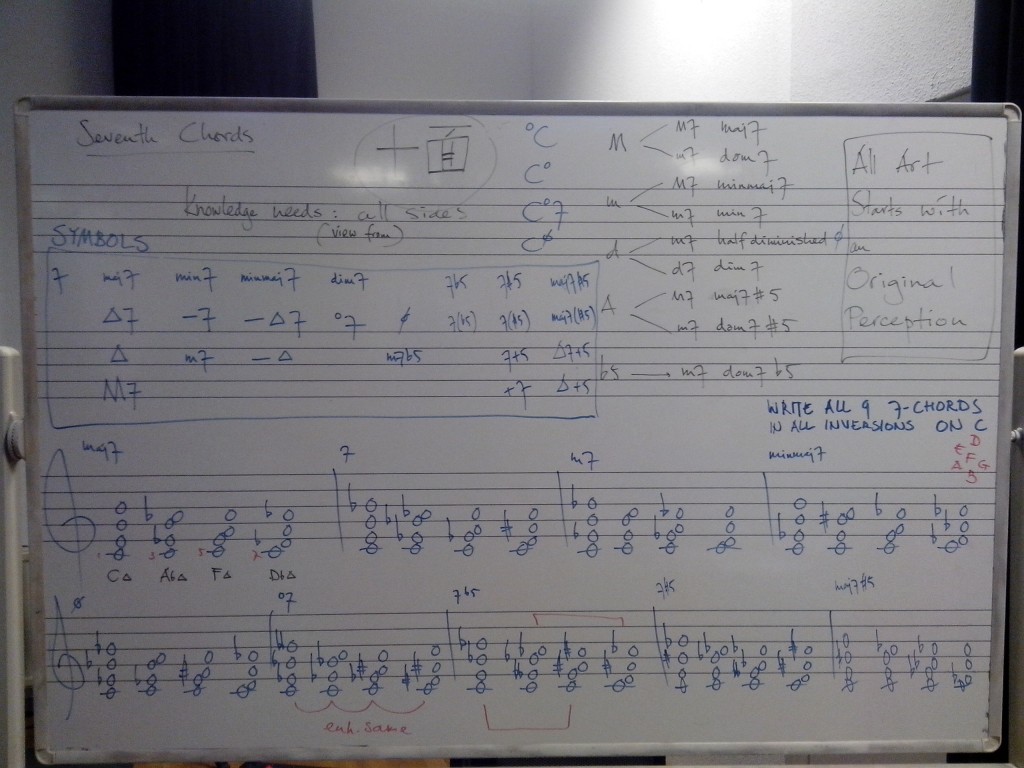 Seventh Chords
Knowledge needs: all sides
(view from)
°C
C°
C°7
Cø
M
M7 maj7
m7 dom7
m
M7 minmaj7
m7 min7
d
m7 half diminished ø
d7 dim7
A
M7 maj7#5
m7 dom7#5
b5 → m7 dom7 b5
All Art
Starts with
an
Original
Perception
SYMBOLS
7 maj7 min7 minmaj7 dim7 7b5 7#5 maj7#5
Δ7 –7 –Δ7 °7 ø 7(b5) 7(#5) maj7(#5)
Δ m7 –Δ m7b5 7+5 Δ7+5
M7 +7 Δ+5
WRITE ALL 9 7-CHORDS
IN ALL INVERSIONS ON C
D
E F G
A B
maj7 7 m7 minmaj7
1 3 5 7
CΔ AbΔ FΔ DbΔ
ø °7 7b5 7#5 maj7#5
enh. same